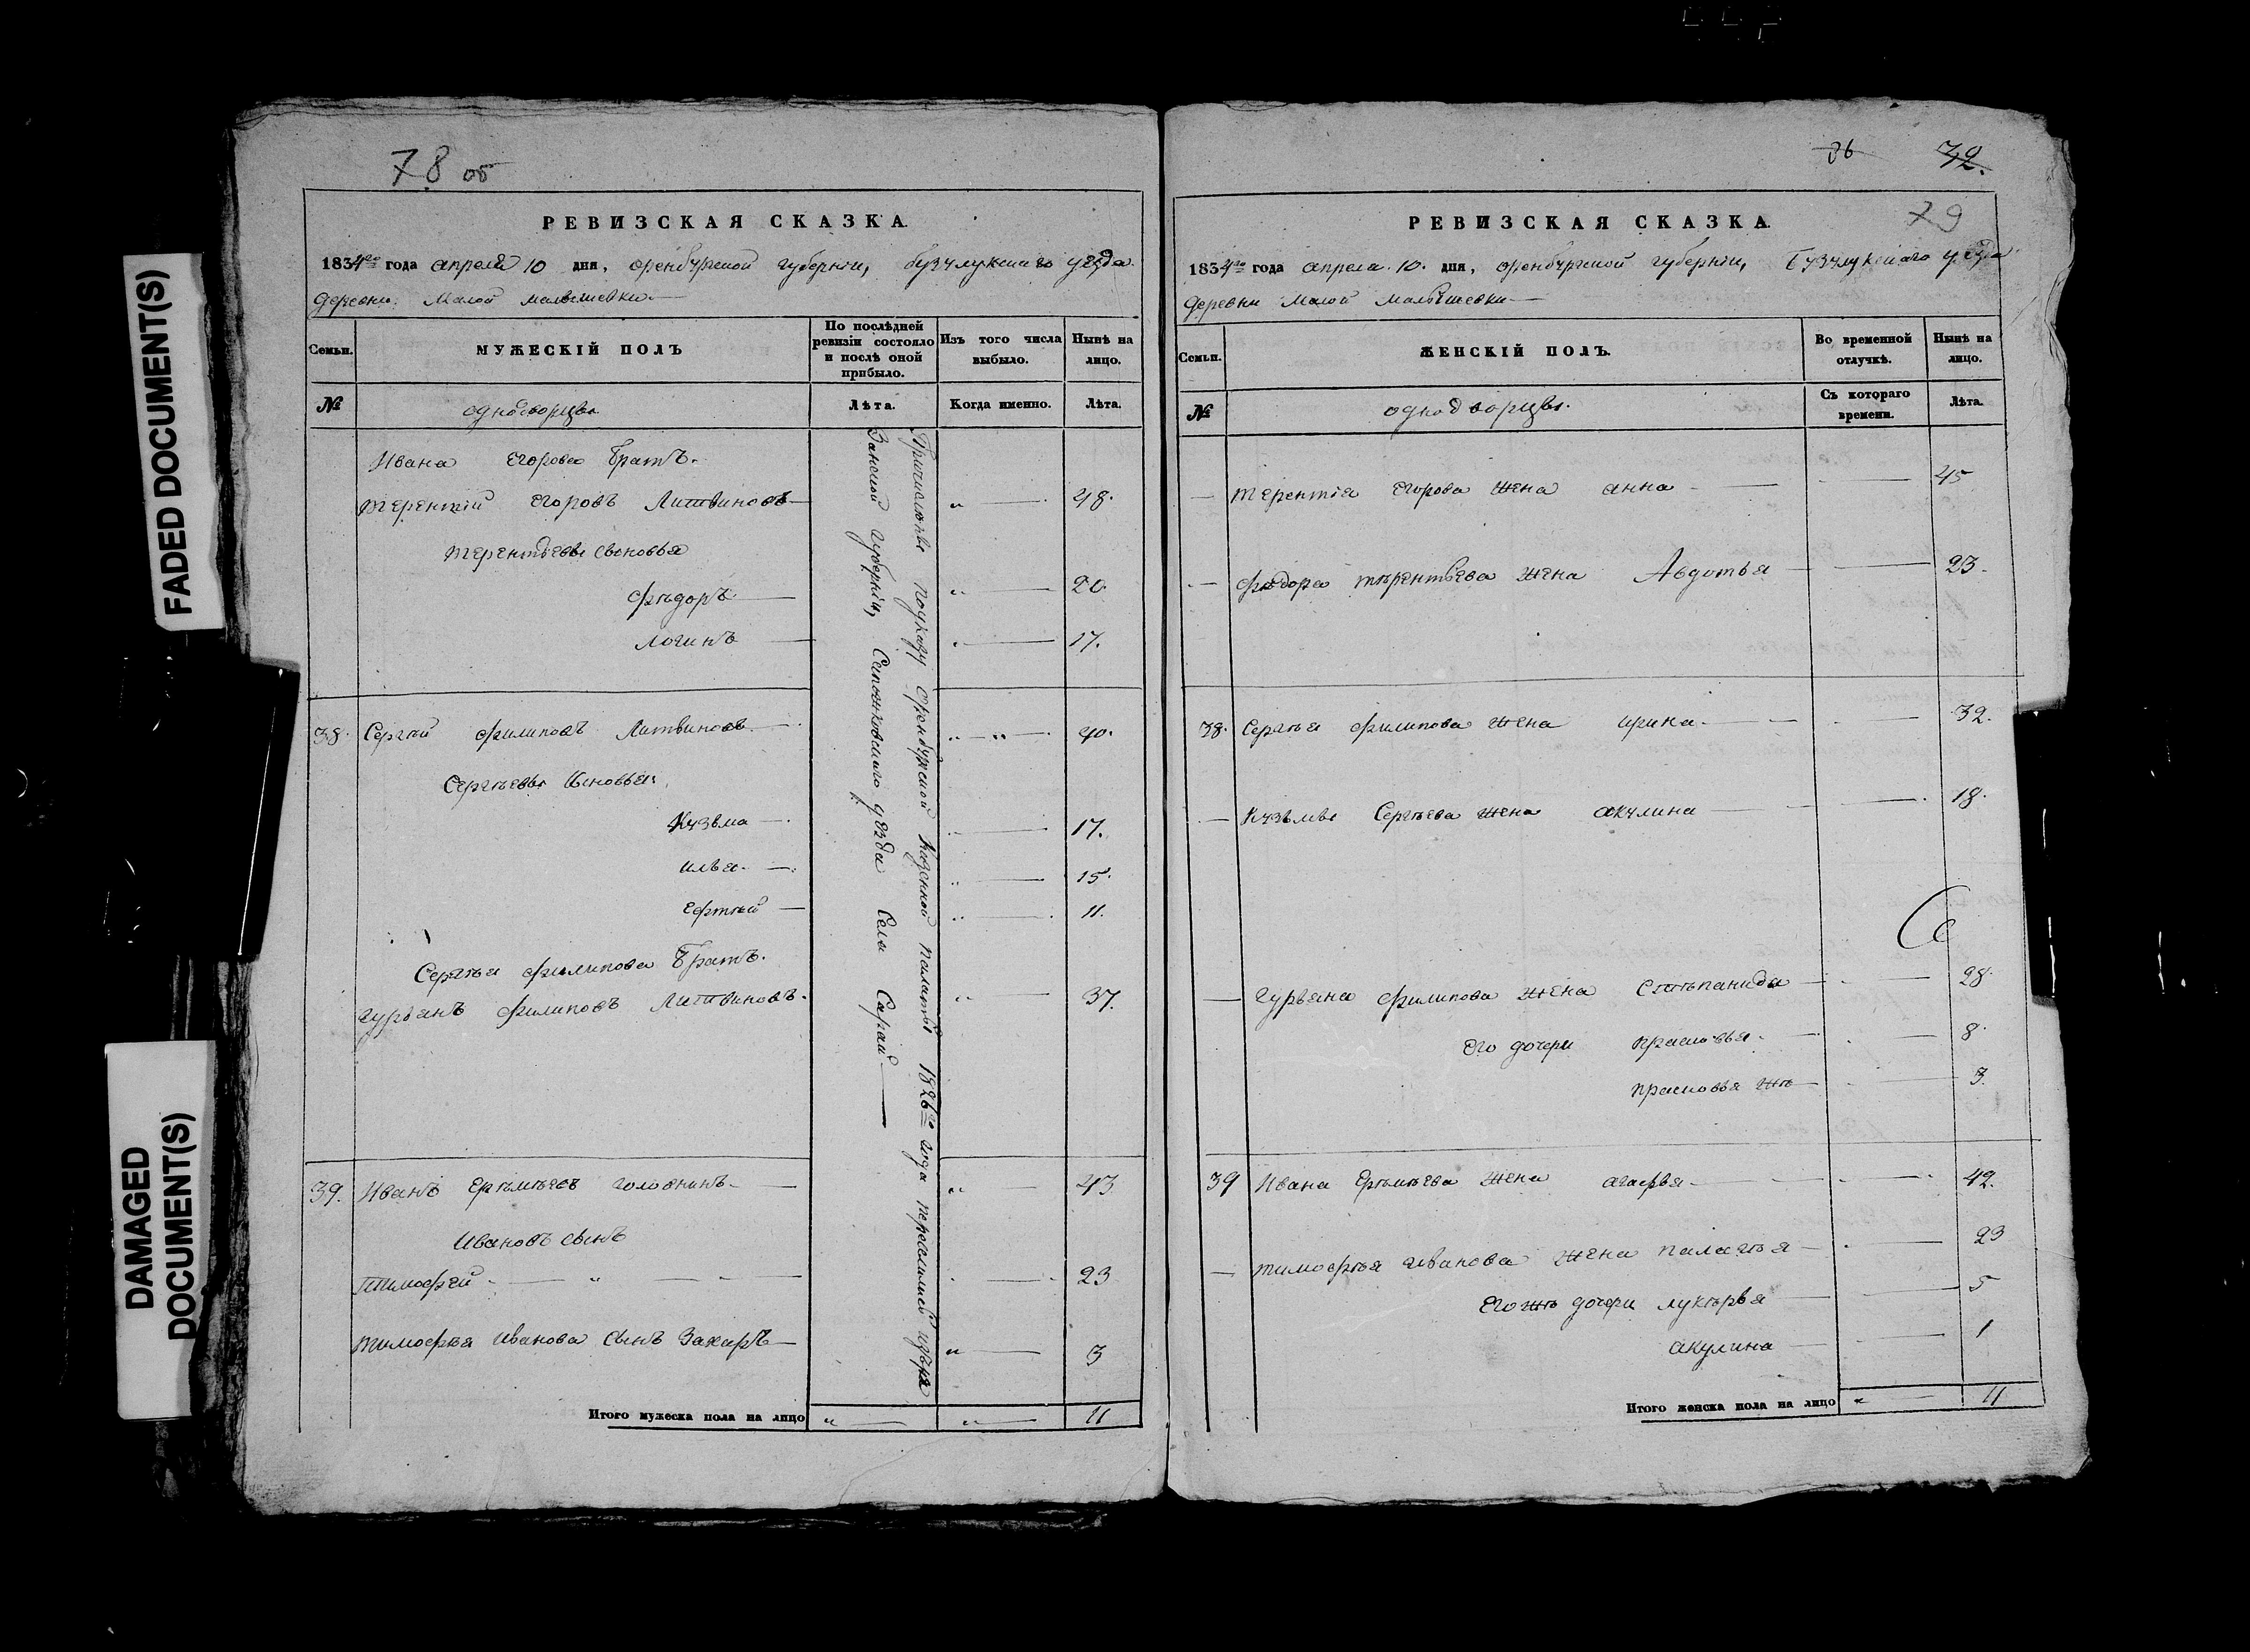 FADED DOCUMENT(S)
DAMAGED
DOCUMENT(S)
78 об
РЕВИЗСКАЯ СКАЗКА.
1834го года апреля 10 дня, оренбургской губернiи, бузулукскаго уезда
деревни Малой малышевки
Семьи.
МУЖЕСКIЙ ПОЛЪ
По послѣдней
ревизiи состояло
и послѣ оной
прибыло.
Изъ того числа
выбыло.
Нынѣ на
лицо.
№
однодворцы
Лѣта.
Когда именно.
Лѣта.
Ивана Егорова братъ.
терентiй Егоровъ Литвиновъ 48.
терентьевы сыновья
Фѣдоръ 20.
логинъ 17.
38. Сергѣй Филиповъ Литвиновъ 40.
Сергѣевы сыновья
Кузьма 17.
илья 15.
Ефтѣй 11.
Сергѣя Филипова братъ.
гурьянъ Филиповъ Литвиновъ 37.
39. Иванъ Ерѣмѣевъ головнинъ 43
Ивановъ сынъ
Тимофей 23
тимофѣя Иванова сынъ Захаръ 3
Причислѣны поуказу оренбургской казенной палаты 1826го года переселились изъря
занской губернiи, Сапожковскаго уѣзда села Сараи
Итого мужеска пола на лицо 11
36 72.
79
РЕВИЗСКАЯ СКАЗКА.
1834го года апреля 10. дня, оренбургской губернiи, бузулукскаго уезда
деревни Малой малышевки
Семьи.
ЖЕНСКIЙ ПОЛЪ.
Во временной
отлучкѣ.
Нынѣ на
лицо.
№
однодворцы.
Съ котораго
времени.
Лѣта.
терентiя Егорова жена анна 45
Фѣдора терентьева жена Авдотья 23.
38. Сергѣя Филипова жена ирина 32.
Кузьмы Сергѣева жена акулина 18.
гурьяна Филипова жена Стѣпанида 28.
его дочери прасковья 8.
прасковья жѣ 3.
39 Ивана Ерѣмѣева жена агафья 42.
тимофѣя иванова жена палагѣя 23
Егожѣ дочери лукѣрья 5
акулина 1
Итого женска пола на лицо 11